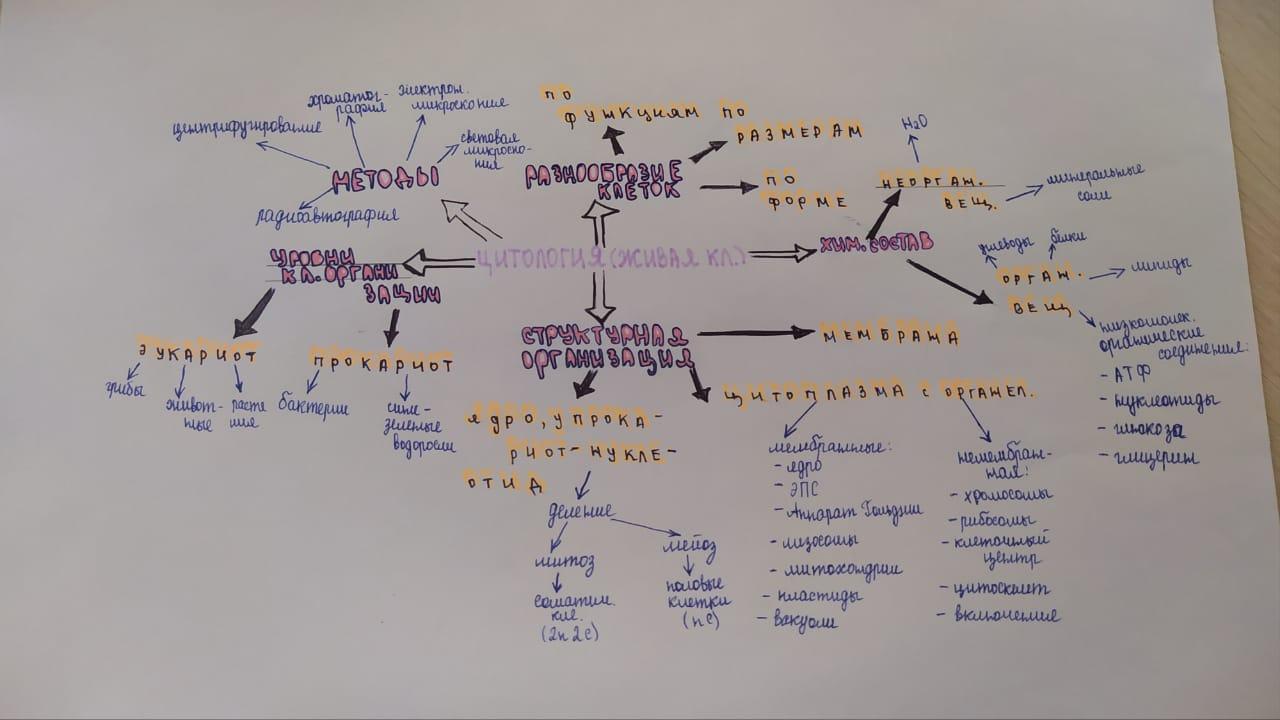 МЕТОДЫ
центрифугирование
хроматог-
рафия
электрон.
микроскопия
световая
микроско-
пия
радиоавтография
РАЗНООБРАЗИЕ
КЛЕТОК
ПО
ФУНКЦИЯМ
ПО
РАЗМЕРАМ
ПО
ФОРМЕ
ЦИТОЛОГИЯ (ЖИВАЯ КЛ.)
ХИМ. СОСТАВ
НЕОРГАН.
ВЕЩ.
H2O
минеральные
соли
ОРГАН.
ВЕЩ
углеводы
белки
липиды
низкомолек.
органические
соединения:
- АТФ
- нуклеотиды
- глюкоза
- глицерин
УРОВНИ
КЛ. ОРГАНИ
ЗАЦИИ
ЭУКАРИОТ
грибы
живот-
ные
расте
ния
ПРОКАРИОТ
бактерии
сине-
зеленые
водоросли
СТРУКТУРНАЯ
ОРГАНИЗАЦИЯ
МЕМБРАНА
ЦИТОПЛАЗМА С ОРГАНЕЛ.
мембранные:
- ядро
- ЭПС
- Аппарат Гольджи
- лизосомы
- митохондрии
- пластиды
- вакуоли
немембран-
ная:
- хромосомы
- рибосомы
- клеточный
центр
- цитоскелет
- включение
ЯДРО, У ПРОКА-
РИОТ - НУКЛЕ-
ОТИД
деление
митоз
соматич.
кле.
(2n 2c)
мейоз
половые
клетки
(nc)